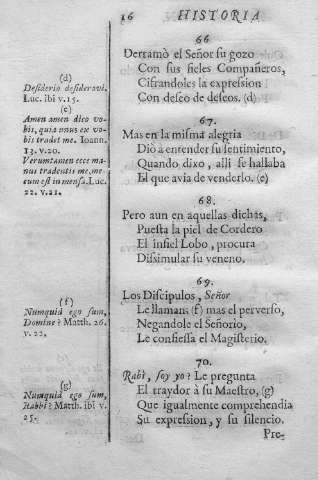 16 HISTORIA
66
Derramò el Señor su gozo
Con sus fieles Compañeros,
Cifrandoles la expression
Con deseo de deseos. (d)
67.
Mas en la misma alegria
Diò à entender su sentimiento,
Quando dixo, allì se hallaba
El que avia de venderlo. (e)
68.
Pero aun en aquellas dichas,
Puesta la piel de Cordero
El infiel Lobo, procura
Dissimular su veneno.
69.
Los Discipulos, Señor
Le llaman: (f) mas el perverso,
Negandole el Señorio,
Le confiessa el Magisterio.
70.
Rabì, soy yo? Le pregunta
El traydor à su Maestro, (g)
Que igualmente comprehendia
Su expression, y su silencio.
Pre-
(d)
Desiderio desideravi.
Luc. ibi v. 15.
(e)
Amen amen dico vo-
bis, quia unus ex vo-
bis tradet me. Ioann.
13. v. 20.
Verumtamen ecce ma-
nus tradentis me, me-
cum est in mensa. Luc.
22. v. 21.
(f)
Numquid ego sum,
Domine? Matth. 26.
v. 22.
(g)
Numquid ego sum,
Rabbi? Matth. ibi v.
25.